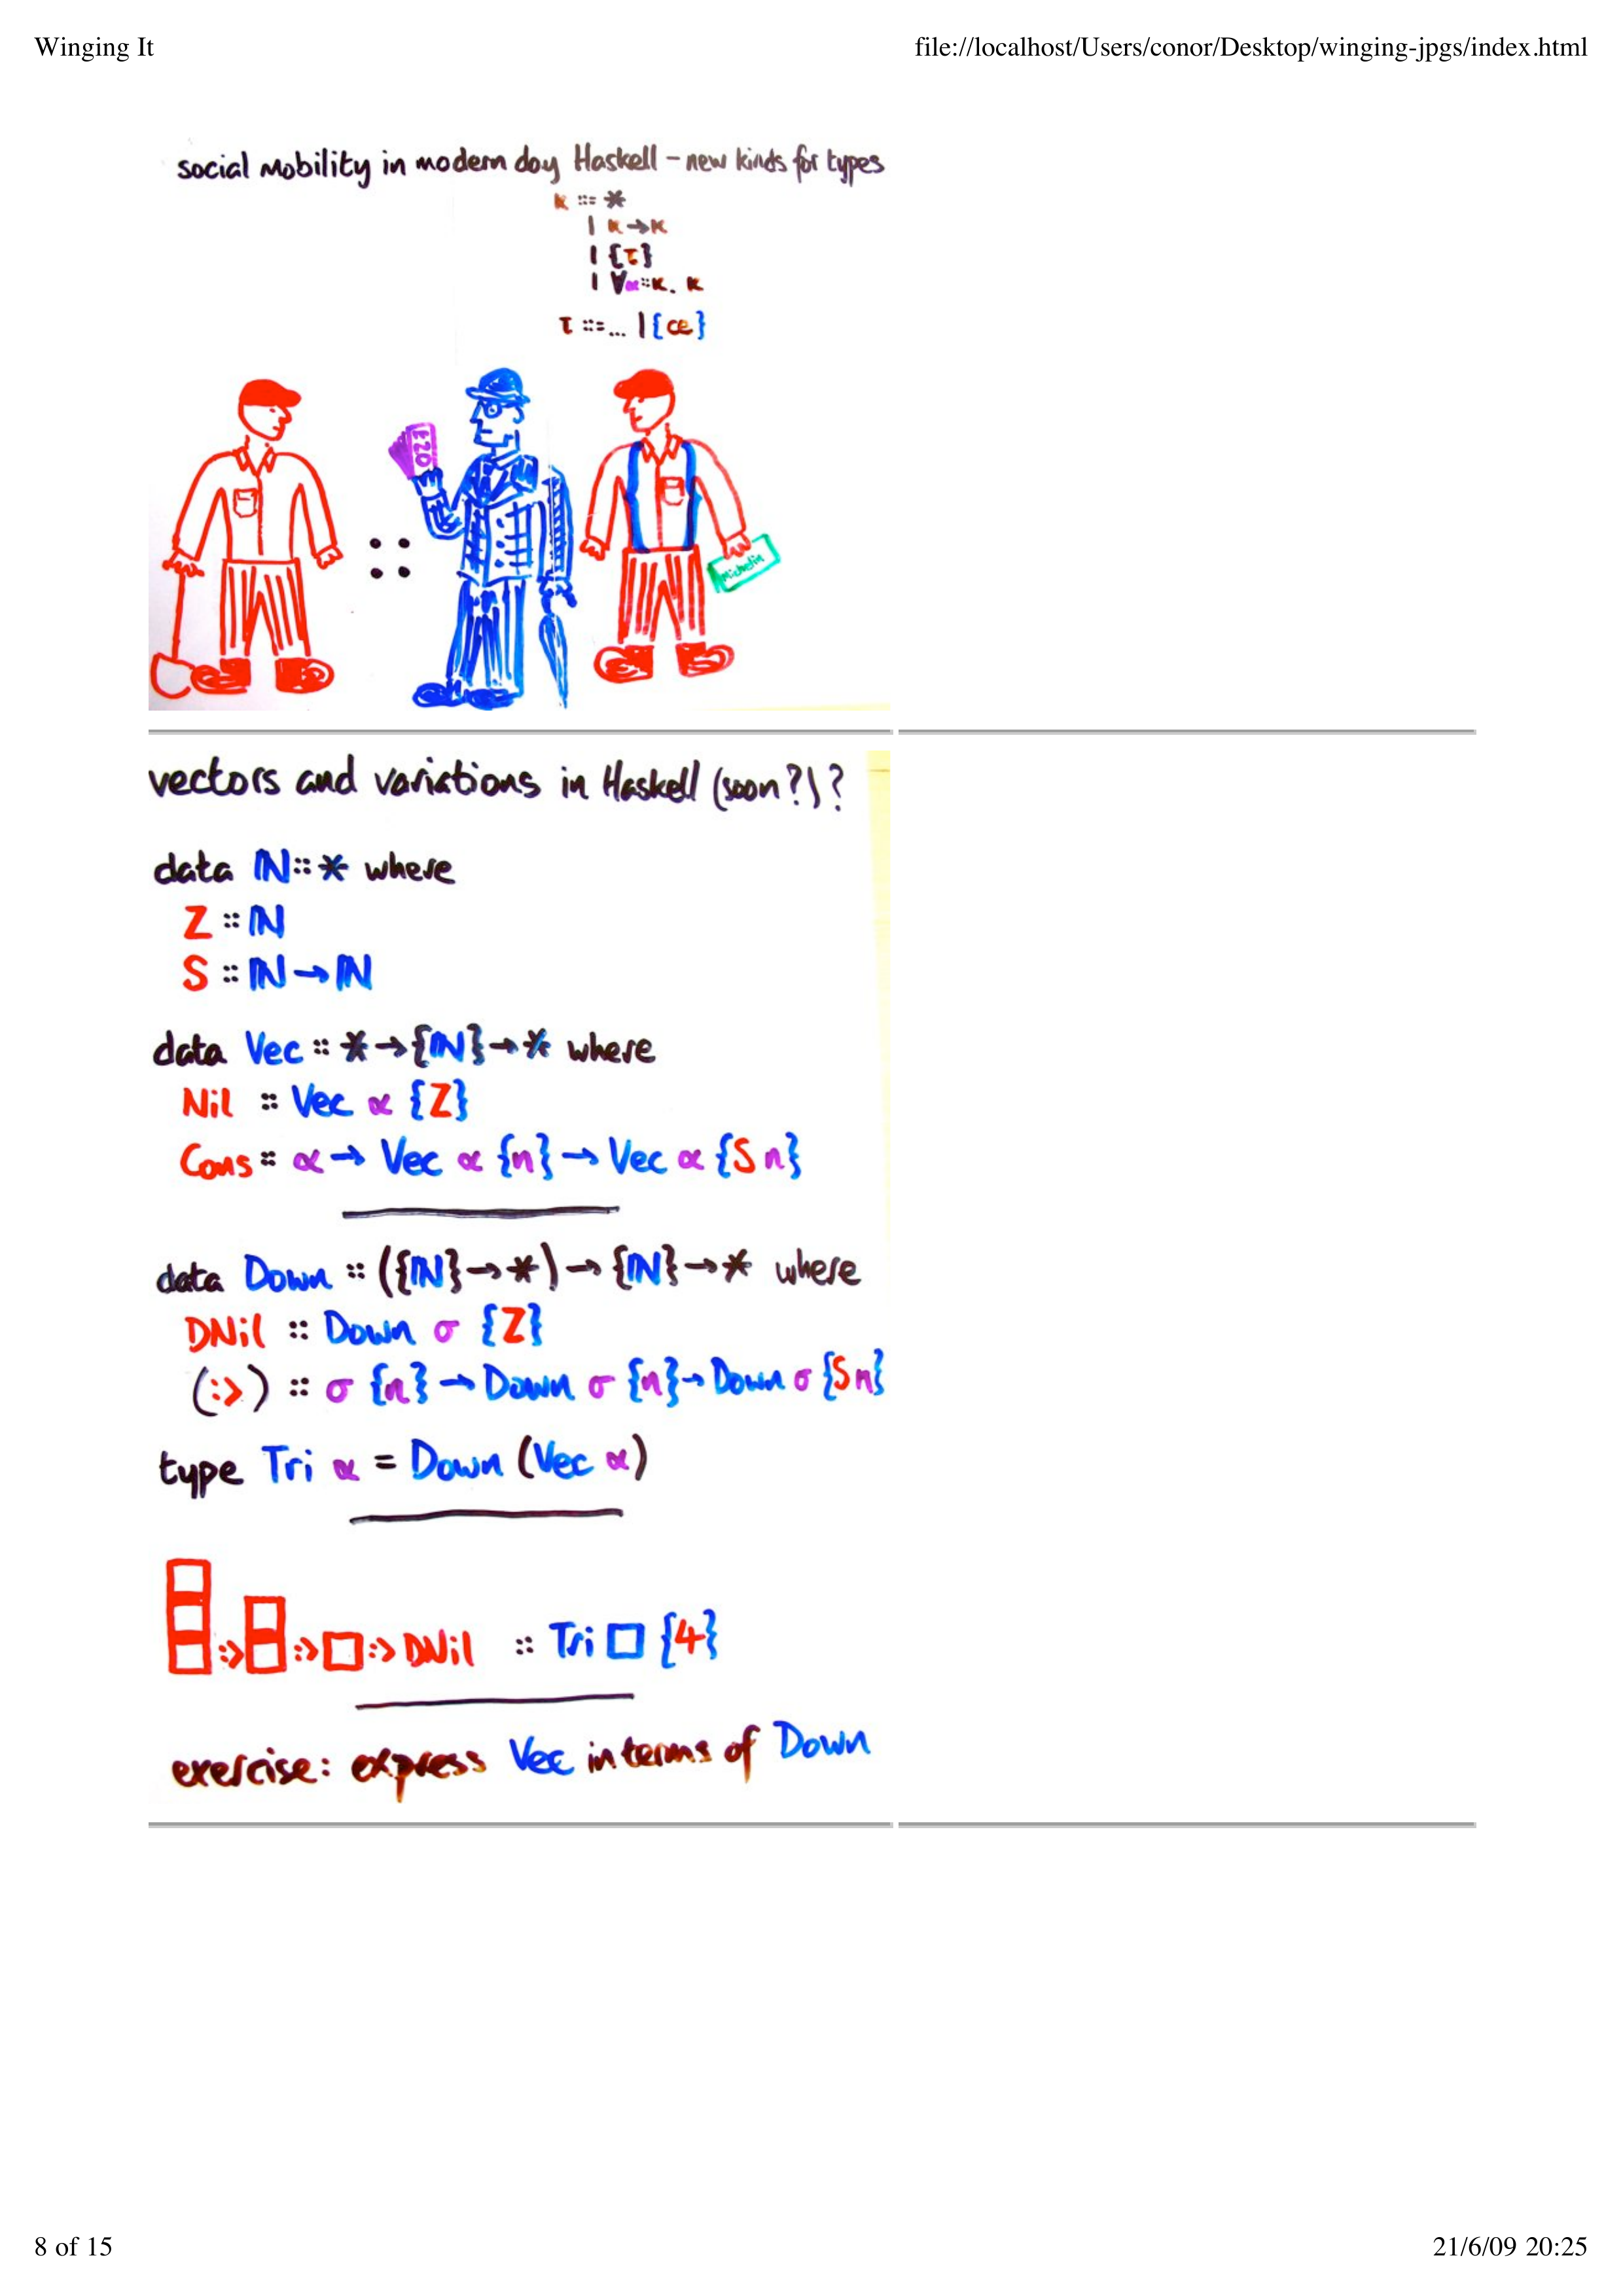 Winging It
file://localhost/Users/conor/Desktop/winging-jpgs/index.html
social mobility in modern day Haskell – new kinds for types
κ ::= *
| κ → κ
| {τ}
| ∀α::κ. κ
τ ::= ... | {ce}
£20
::
Michelin
vectors and variations in Haskell (soon?)?
data ℕ :: * where
Z :: ℕ
S :: ℕ → ℕ
data Vec :: * → {ℕ} → * where
Nil :: Vec α {Z}
Cons :: α → Vec α {n} → Vec α {S n}
data Down :: ({ℕ} → *) → {ℕ} → * where
DNil :: Down σ {Z}
(:>) :: σ {n} → Down σ {n} → Down σ {S n}
type Tri α = Down (Vec α)
:> :> □ :> DNil :: Tri □ {4}
exercise: express Vec in terms of Down
8 of 15
21/6/09 20:25